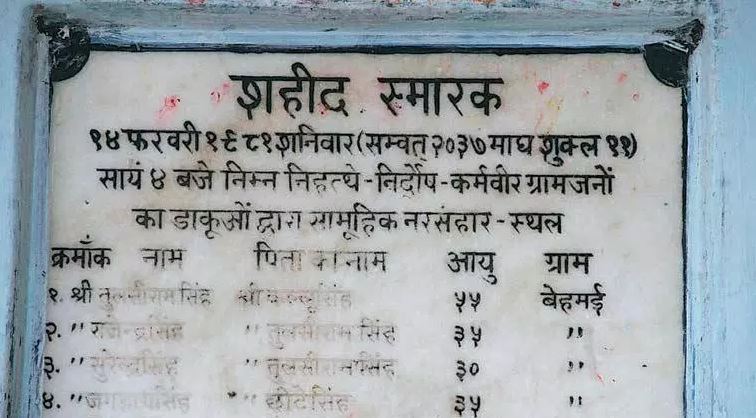 शहीद स्मारक
१४ फरवरी १९८१ शनिवार (सम्वत् २०३७ माघ शुक्ल ११)
सायं ४ बजे निम्न निहत्थे - निर्दोष - कर्मवीर ग्रामजनों
का डाकूओं द्वारा सामूहिक नरसंहार - स्थल
क्रमाँक नाम पिता का नाम आयु ग्राम
१. श्री तुलसीराम सिंह श्री सिंह ५५ बेहमई
२. " राजेन्द्रसिंह " तुलसीराम सिंह ३५ "
३. " सुरेन्द्रसिंह " तुलसीराम सिंह ३० "
४. " " छोटेसिंह ३५ "